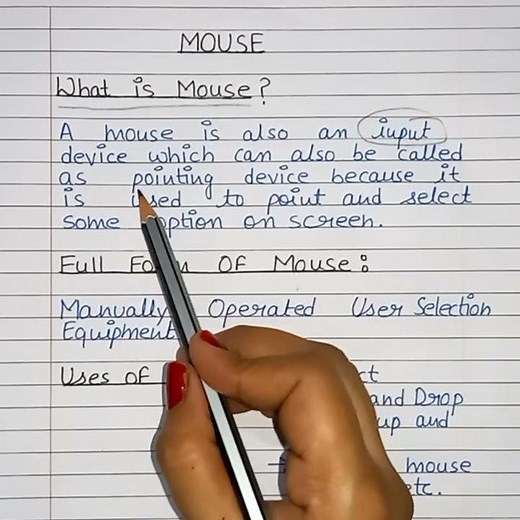 MOUSE
What is Mouse?
A mouse is also an input
device which can also be called
as pointing device because it
is used to point and select
some option on screen.
Full Form OF Mouse:
Manually Operated User Selection
Equipment
Uses of
and Drop
up and
→ mouse
etc.